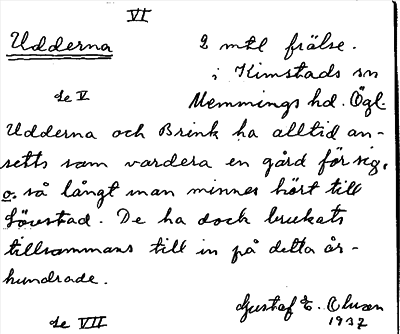 VI
Udderna 2 mtl frälse.
i Kimstads sn
se V Memmings hd. Ögl.
Udderna och Brink ha alltid an-
setts som vardera en gård för sig,
o. så långt man minnes hört till
Lövstad. De ha dock brukats
tillsammans till in på detta år-
hundrade.
Gustaf E. Olsson
se VII 1937